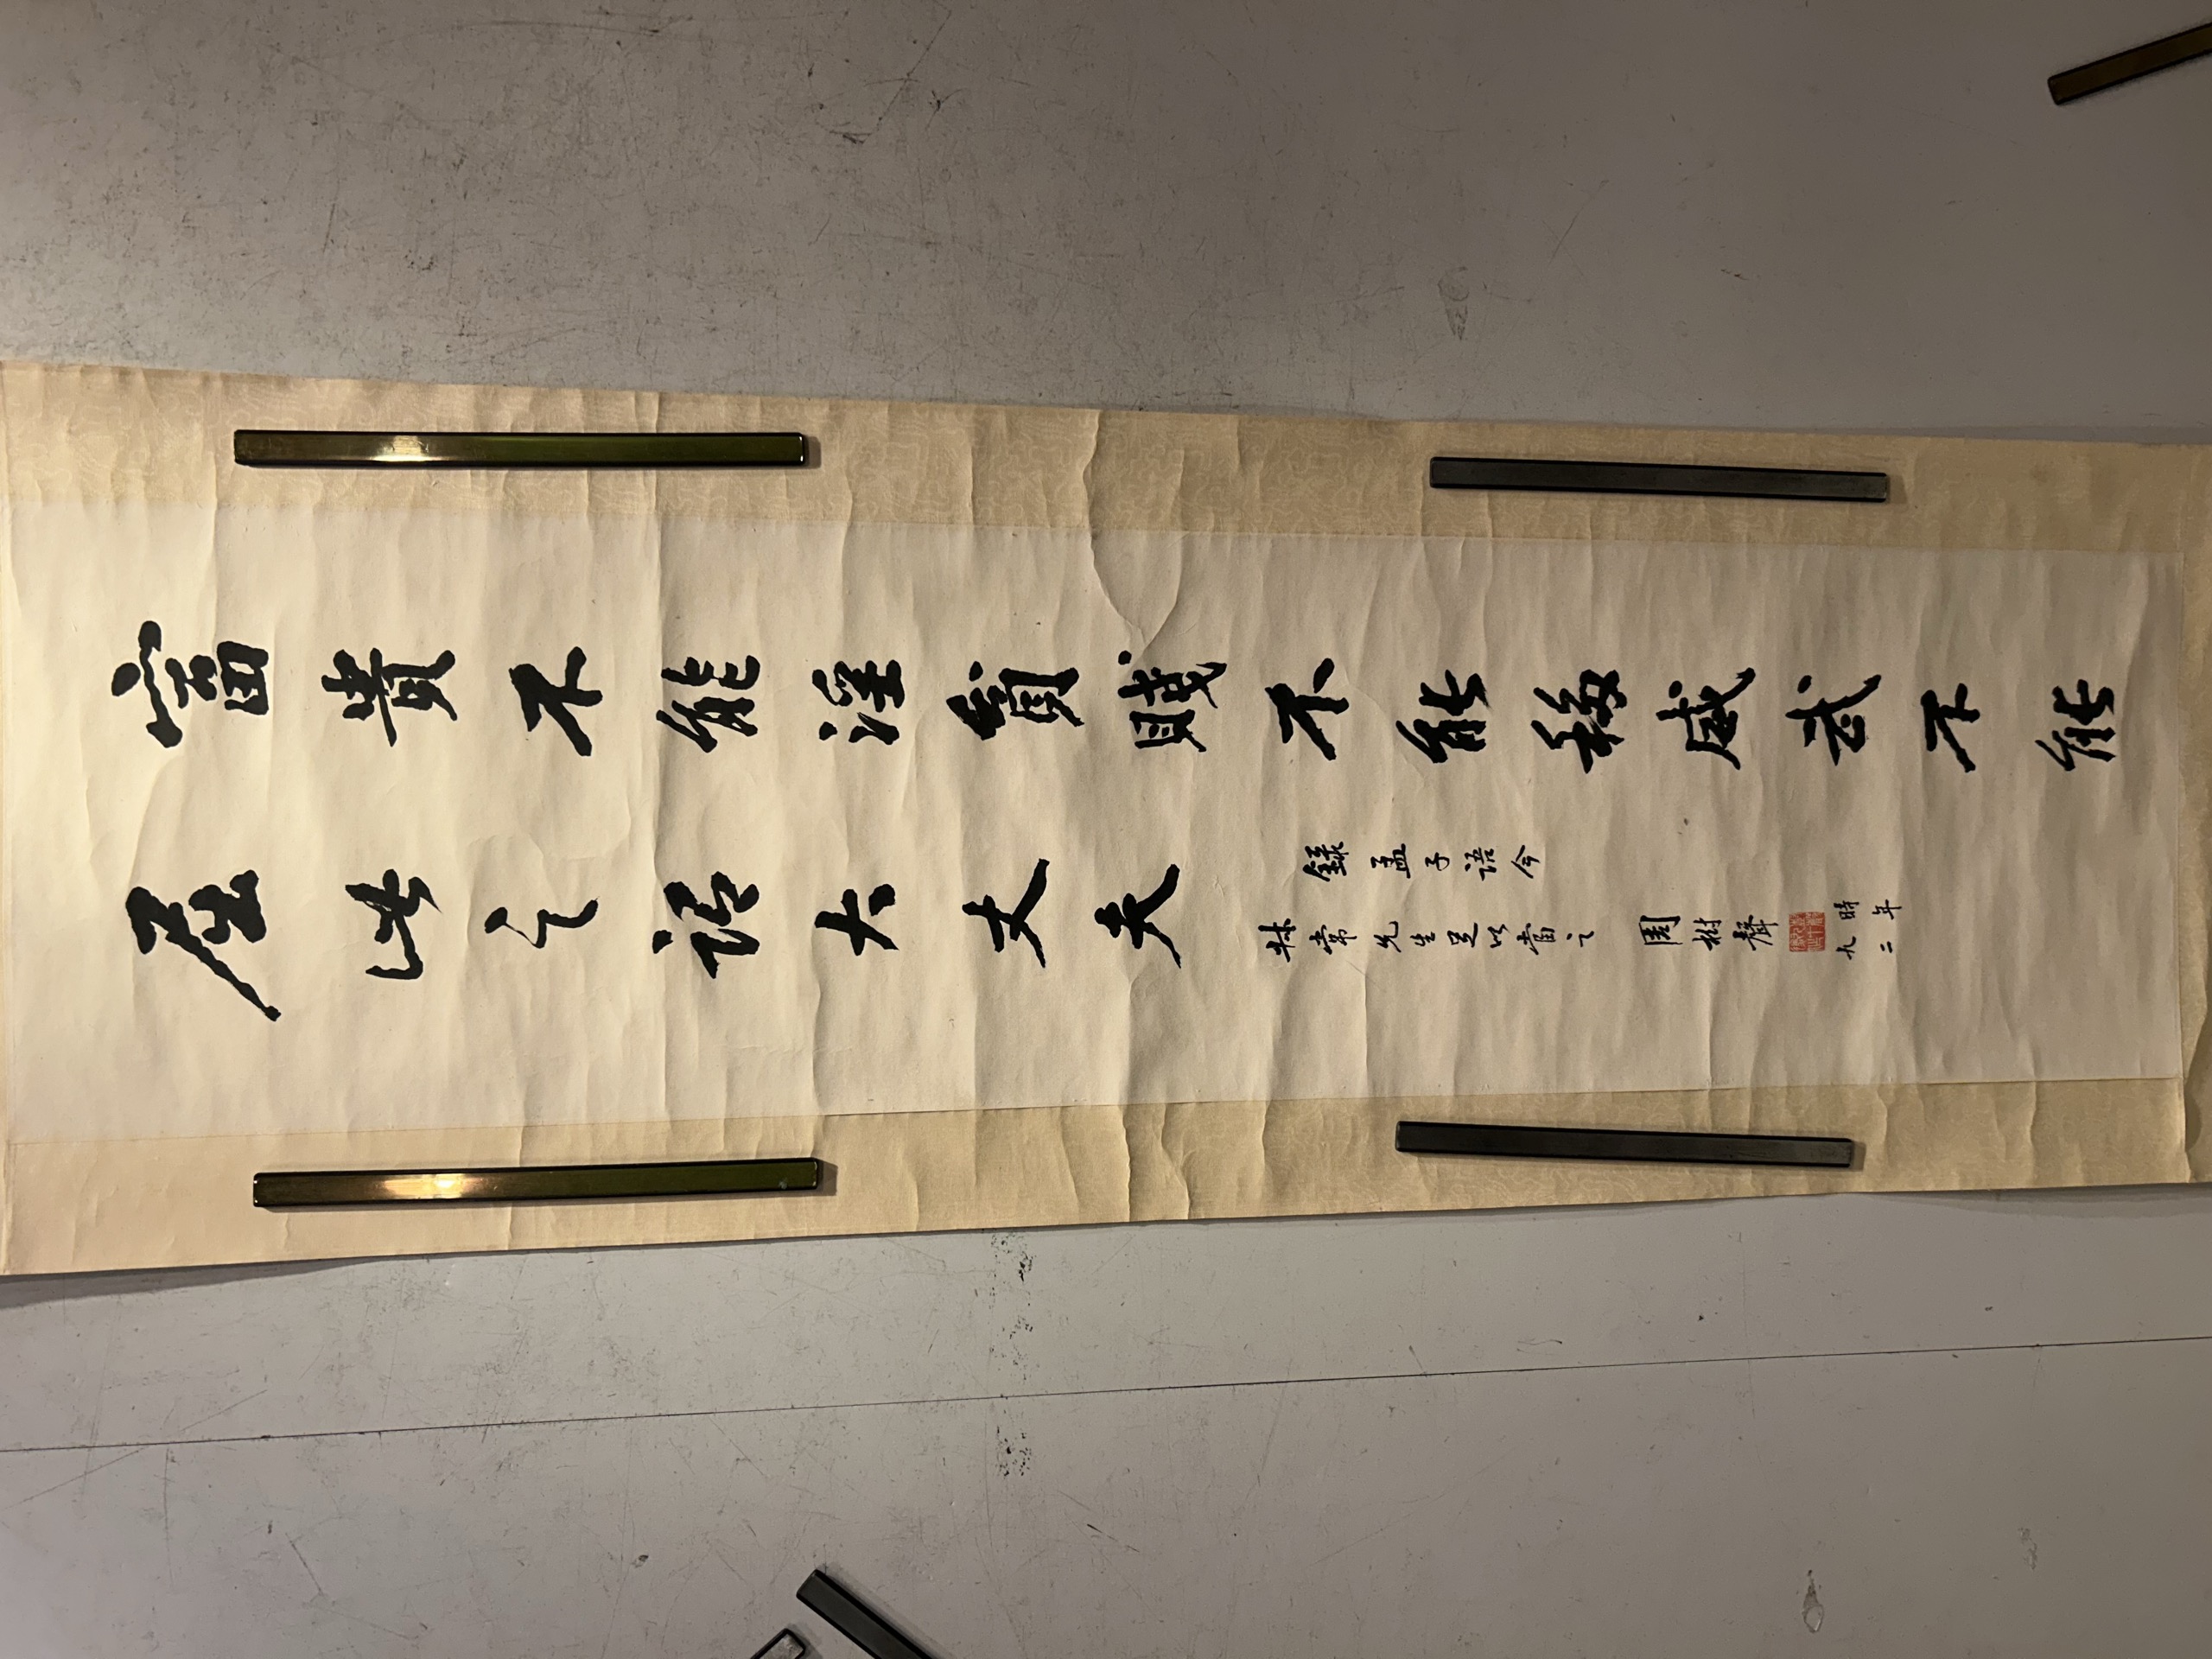 富貴不能淫貧賤不能移威武不能
屈此之謂大丈夫
錄孟子語今
常先生足以當之
周樹聲
時年
九二